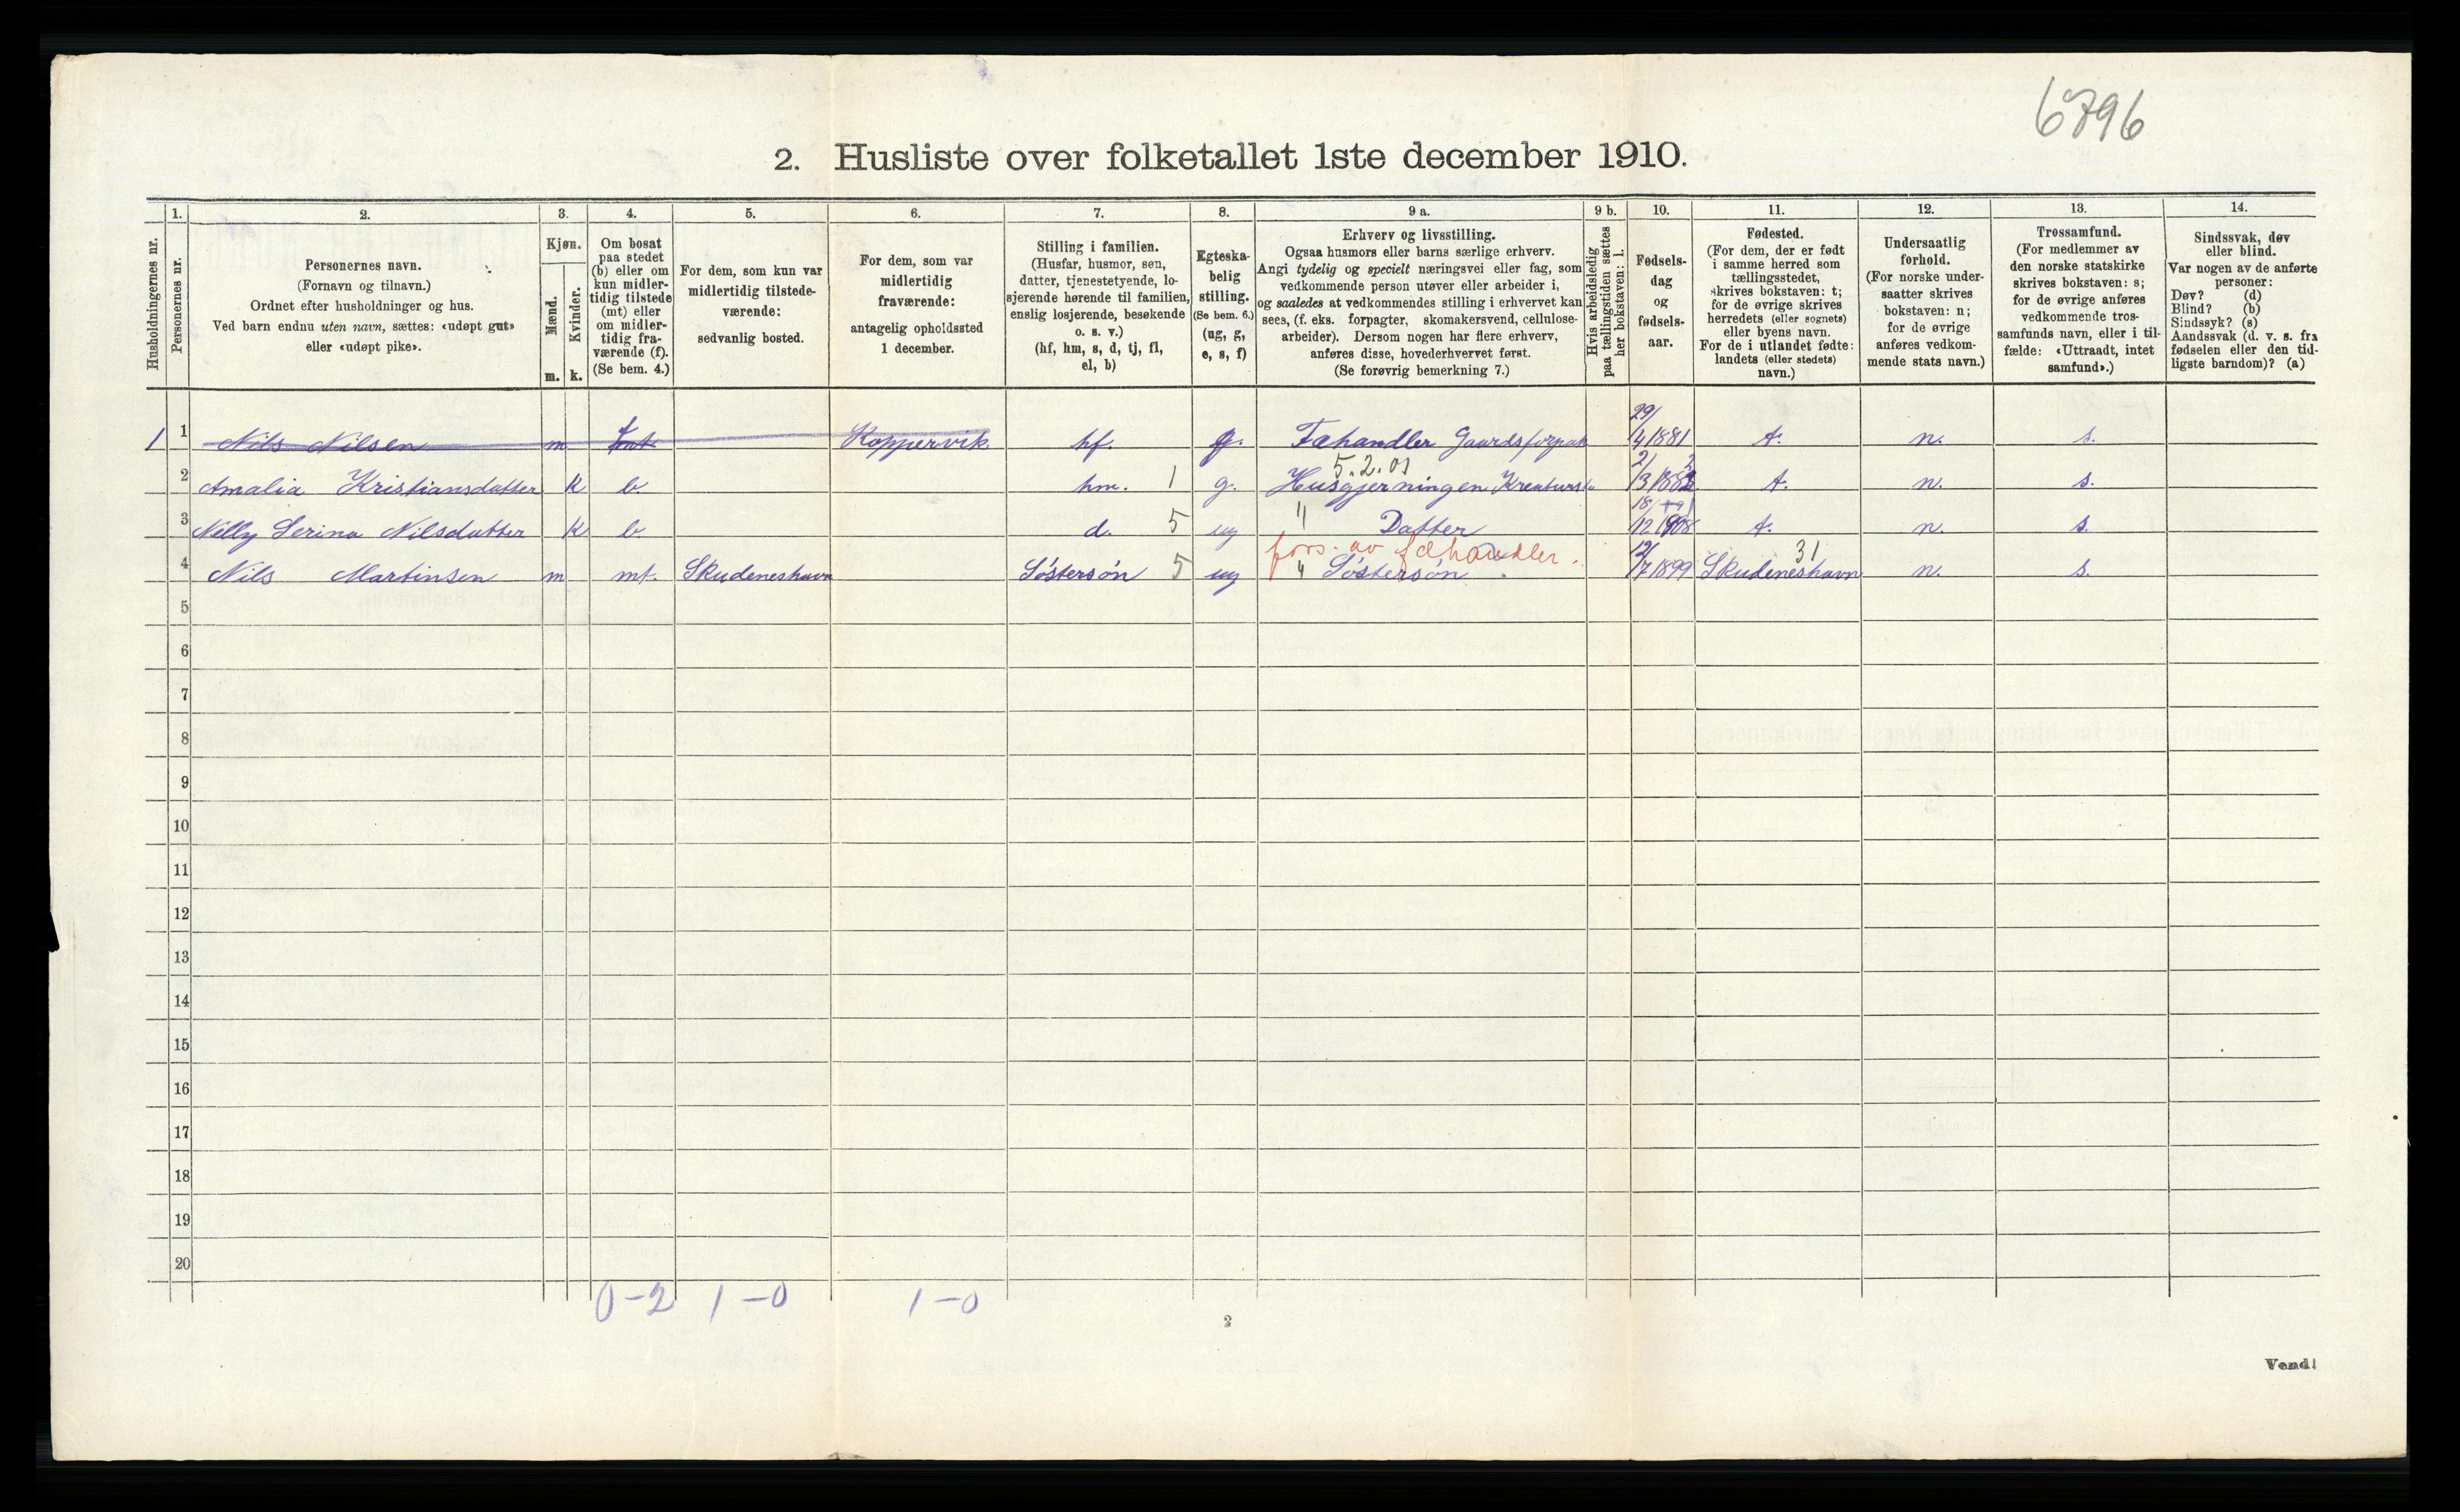 6796
2. Husliste over folketallet 1ste december 1910.
Husholdningernes nr.
1.
Personernes nr.
2.
Personernes navn.
(Fornavn og tilnavn.)
Ordnet efter husholdninger og hus.
Ved barn endnu uten navn, sættes: «udøpt gut»
eller «udøpt pike».
3.
Kjøn.
Mænd.
m.
Kvinder.
k.
4.
Om bosat
paa stedet
(b) eller om
kun midler-
tidig tilstede
(mt) eller
om midler-
tidig fra-
værende (f).
(Se bem. 4.)
5.
For dem, som kun var
midlertidig tilstede-
værende:
sedvanlig bosted.
6.
For dem, som var
midlertidig
fraværende:
antagelig opholdssted
1 december.
7.
Stilling i familien.
(Husfar, husmor, søn,
datter, tjenestetyende, lo-
sjerende hørende til familien,
enslig losjerende, besøkende
o. s. v.)
(hf, hm, s, d, tj, fl,
el, b)
8.
Egteska-
belig
stilling.
(Se bem. 6.)
(ug, g,
e, s, f)
9 a.
Erhverv og livsstilling.
Ogsaa husmors eller barns særlige erhverv.
Angi tydelig og specielt næringsvei eller fag, som
vedkommende person utøver eller arbeider i,
og saaledes at vedkommendes stilling i erhvervet kan
sees, (f. eks. forpagter, skomakersvend, cellulose-
arbeider). Dersom nogen har flere erhverv,
anføres disse, hovederhvervet først.
(Se forøvrig bemerkning 7.)
9 b.
Hvis arbeidsledig
paa tællingstiden sættes
her bokstaven: l.
10.
Fødsels-
dag
og
fødsels-
aar.
11.
Fødested.
(For dem, der er født
i samme herred som
tællingsstedet,
skrives bokstaven: t;
for de øvrige skrives
herredets (eller sognets)
eller byens navn.
For de i utlandet fødte:
landets (eller stedets)
navn.)
12.
Undersaatlig
forhold.
(For norske under-
saatter skrives
bokstaven: n;
for de øvrige
anføres vedkom-
mende stats navn.)
13.
Trossamfund.
(For medlemmer av
den norske statskirke
skrives bokstaven: s;
for de øvrige anføres
vedkommende tros-
samfunds navn, eller i til-
fælde: «Uttraadt, intet
samfund».)
14.
Sindssvak, døv
eller blind.
Var nogen av de anførte
personer:
Døv? (d)
Blind? (b)
Sindssyk? (s)
Aandssvak (d. v. s. fra
fødselen eller den tid-
ligste barndom)? (a)
1 1 Nils Nilsen m Koppervik hf. g. Fæhandler 29/4 1881 t. n. s.
5.2.01
2 Amalia Kristiansdatter k b. hm. 1 g. Husgjerningen t. n. s.
3 Nelly Serina Nilsdatter k b d. 5 ug " Datter 18/12 1908 t. n. s.
fors. av fæhandler.
4 Nils Martinsen m mt. Skudeneshavn Söstersön 5 ug " Söstersön. 12/7 1899 Skudeneshavn 31 n. s.
5
6
7
8
9
10
11
12
13
14
15
16
17
18
19
20
0-2 1-0 1-0
2
Vend!